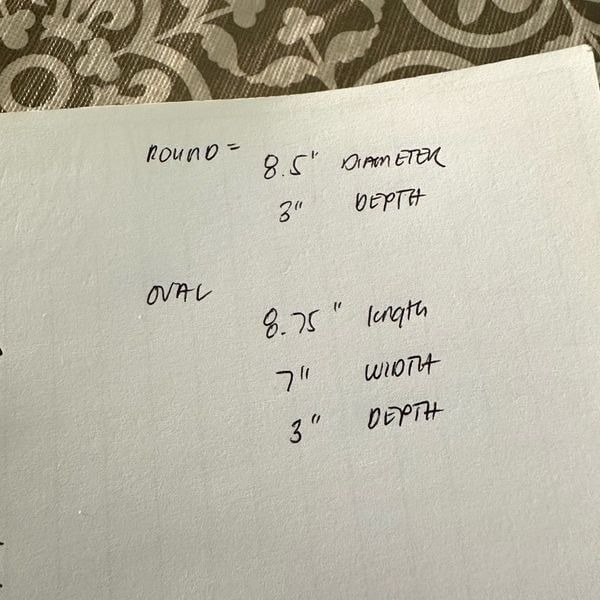 ROUND = 8.5" DIAMETER
3" DEPTH
OVAL
8.75" length
7" WIDTH
3" DEPTH